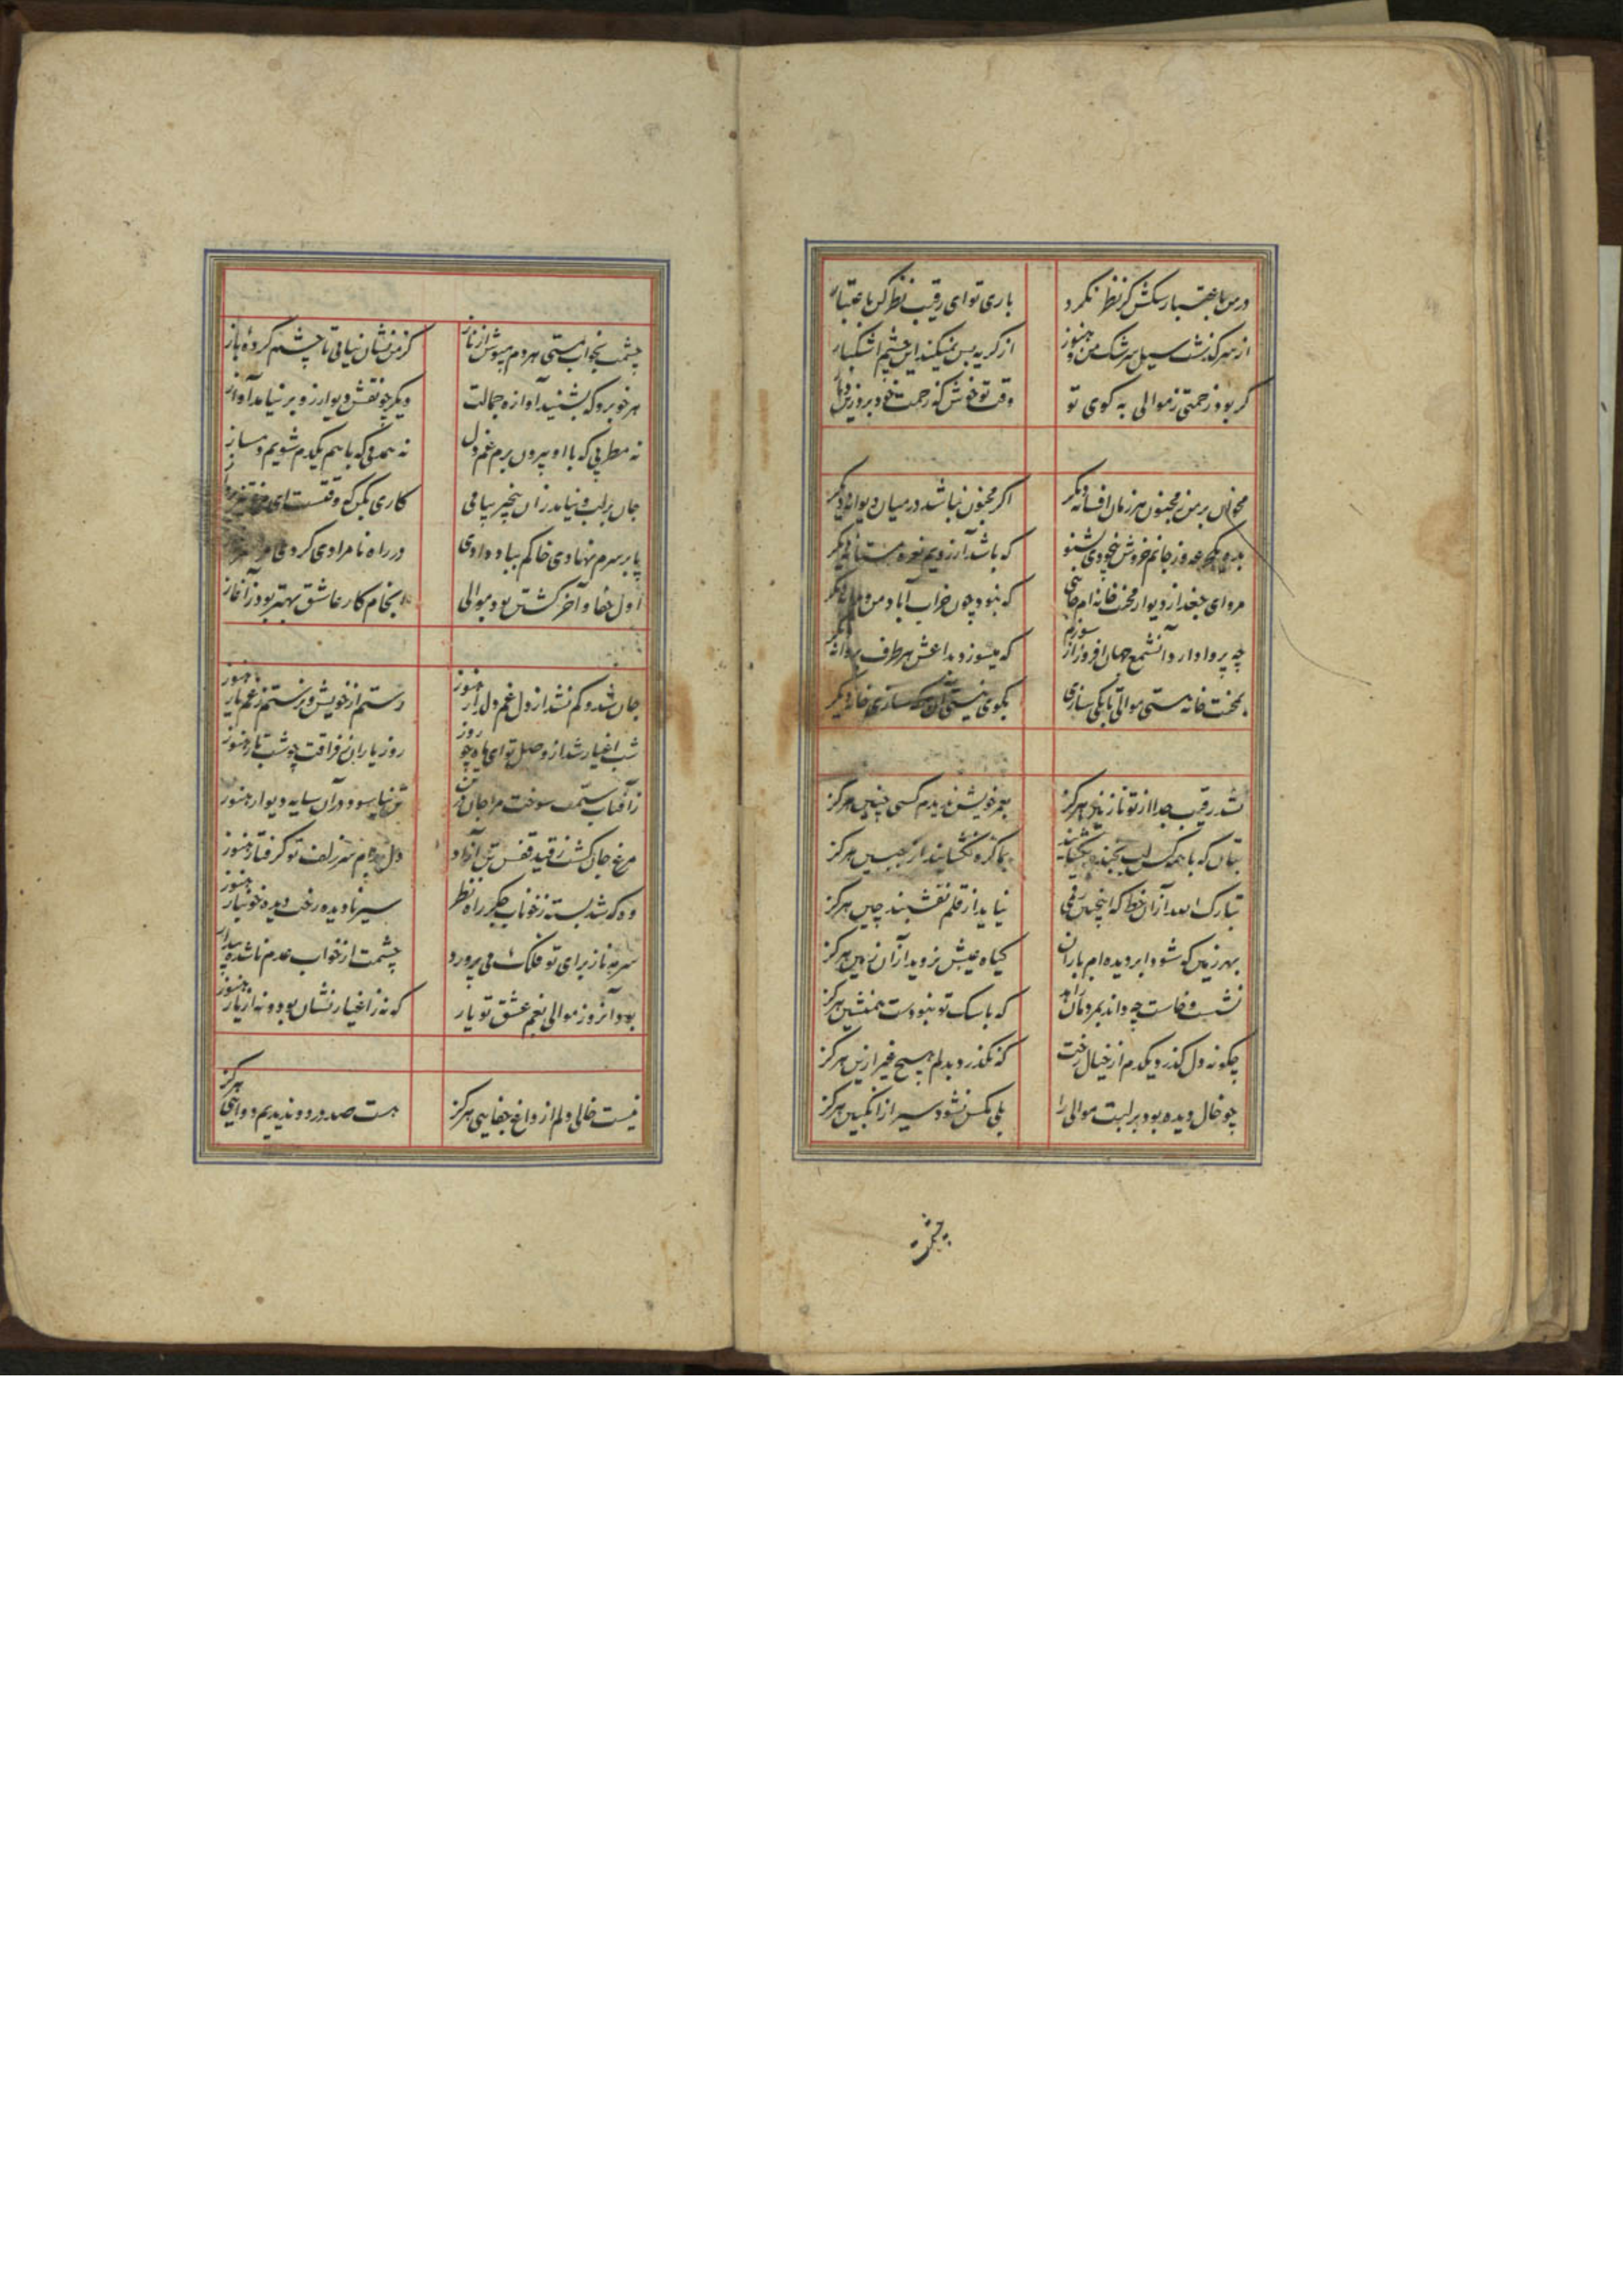 در من به اعتبار سگش گر نظر نکرد باری تو ای رقیب نظر کن به اعتبار
از سر گذشت سیل سرشک من و هنوز از گریه بس نمیکند این چشم اشکبار
گر بود زحمتی ز موالی به کوی تو وقت تو خوش که زحمت خود برد زین
مخوان بر من ز مجنون هر زمان افسانه دیگر اگر مجنون نباشد در میان دیوانه دیگر
بده یک جرعه وز جانم خروش بیخودی بشنو که باشد آرزویم نعره مستانه دیگر
مرو ای جغد از دیوار محنت خانه ام جایی که نبود چون خراب آباد من ویرانه دیگر
چه پروا دارد آن شمع جهان افروز از سوزم که میسوزد به داغش هر طرف پروانه دیگر
به محنت خانه هستی موالی تا بکی سازی بکوی نیستی آن به که سازی خانه دیگر
نشد رقیب جدا از تو نازنین هرگز بعمر خویش ندیدم کسی چنین هرگز
بتان که با همه کس لب بخنده بگشایند بما گره نگشایند از جبین هرگز
تبارک الله از آن خط که اینچنین رقمی نیاید از قلم نقشبند چین هرگز
بهر زمین که شود ابر دیده ام باران گیاه عیش نروید از آن زمین هرگز
نشست و خاست چه داند بمردمان زاهد که با سگ تو نبودست همنشین هرگز
چگونه دل گذرد یکدم از خیال رخت که نگذرد بدلم هیچ غیر ازین هرگز
چو خال دیده بود بر لبت موالی را بلی مگس نشود سیر از انگبین هرگز
چشمت بخواب مستی هر دم مپوش از ناز کز من نشان نیابی تا چشم کرده باز
هر خوبرو که بشنید آوازه جمالت دیگر چو نقش دیوار زو بر نیامد آواز
نه مطربی که با او بیرون برم غم دل نه همدمی که با هم یکدم شویم دمساز
جان بر لب و نیامد زان بیخبر پیامی کاری بکن که وقتست ای
پا بر سرم نهادی خاکم بباد دادی در راه نامرادی کردی
اول جفا و آخر کشتن بود موالی انجام کار عاشق بهتر بود ز آغاز
جان شد و کم نشد از دل غم دلدار هنوز رستم از خویش و نرستم ز غم یار هنوز
شب اغیار شد از وصل تو ای ماه چو روز روز یاران ز فراقت چو شب تار هنوز
ز آفتاب ستمت سوخت مرا جان و تن نیاسود در آن سایه دیوار هنوز
مرغ جان گشت ز قید قفس تن آزاد دل بدام سر زلف تو گرفتار هنوز
وه که شد بسته ز خوناب جگر راه نظر سیر نادیده رخت دیده خونبار هنوز
سرمه ناز برای تو فلک می پرورد چشمت از خواب عدم ناشده بیدار هنوز
بود آنروز موالی بغم عشق تو یار که نه ز اغیار نشان بود و نه از یار هنوز
نیست خالی دلم از داغ جفایی هرگز هست صد درد و ندیدیم دوایی هرگز